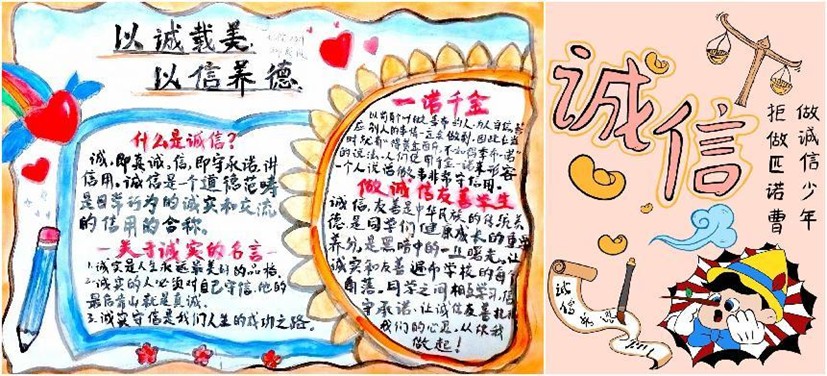 以诚载美
以信养德
什么是诚信?
诚,即真诚,信,即守承诺,讲
信用。诚信是一个道德范畴
是日常行为的诚实和交流
的信用的合称。
关于诚实的名言
1.诚实是人生永远最美好的品格。
2.诚实的人必须对自己守信,他的
最后靠山就是真诚。
3.诚实守信是我们人生的成功之路。
一诺千金
以前有个叫做季布的人,为人守信,答
应别人的事情一定会做到,因此在当
的说法,人们运用千金一诺来形容
一个人说话做事非常守信用。
做诚信友善学生
诚信、友善是中华民族的传统美
德,是同学们健康成长的重要
养分,是黑暗中的一丝曙光,让
诚实和友善遍布学校的每个
角落。同学之间相互学习,信
守承诺,让诚信友善扎根
我们的心里,从你我
做起!
诚信
做诚信少年
拒做匹诺曹